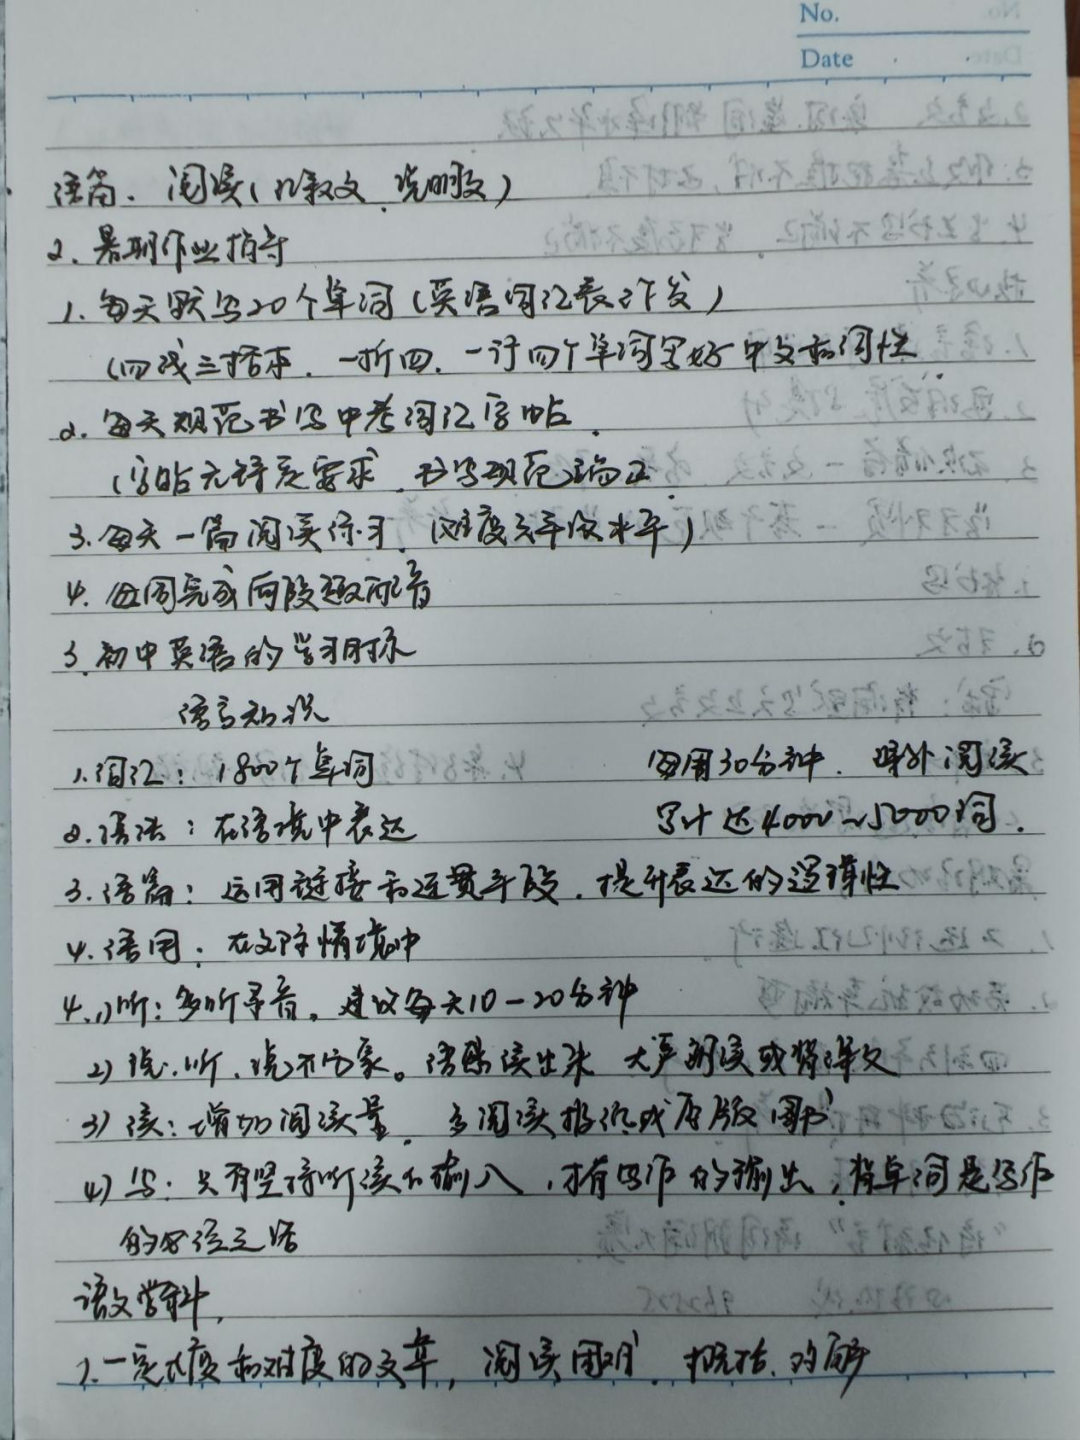 No.
Date
语篇. 阅读(记叙文、说明文)
2. 暑期作业指导
1. 每天默写20个单词(英语词汇表已发)
(四线三格本. 一折四. 一行四个单词写好中文和词性
2. 每天规范书写中考词汇字帖.
(字帖无特定要求. 书写规范端正
3. 每天一篇阅读练习. (难度六年级水平)
4. 每周完成两段趣配音
3. 初中英语的学习目标
语言知识
1. 词汇: 1800个单词 每周30分钟. 课外阅读
2. 语法: 在语境中表达 累计达4000~5000词.
3. 语篇: 运用链接和连贯手段. 提升表达的逻辑性
4. 语用: 在交际情境中
4. 1) 听: 多听录音。建议每天10-20分钟
2) 说: 听、说不分家。 读出来 大声朗读或背课文
3) 读: 增加阅读量. 多阅读报纸或原版图书
4) 写: 只有坚持听读的输入, 才有写作的输出, 背单词是写作
的必经之路
语文学科.
1. 一定长度和难度的文章, 阅读困难. 概括.